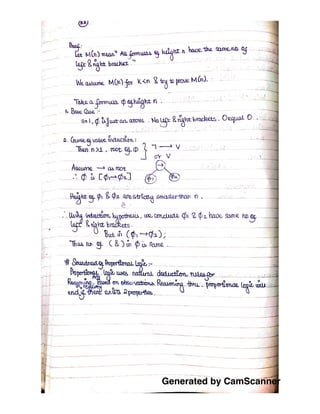 Proof:
Let M(n) mean "All formulas of height n have the same no of
left & right bracket"
We assume M(k) for k<n & try to prove M(n).
Take a formula φ of height n.
1. Base Case:
n=1, φ is just an atom. No left & right brackets. 0 equal 0.
2. Course of value induction:
Then n>1. root of φ } ¬ → V
or V
Assume → as root
∴ φ is [φ₁→φ₂]
Height of φ₁ & φ₂ are strictly smaller than n.
∴ Using induction hypothesis, we conclude φ₁ & φ₂ have same no of
left & right brackets.
But in (φ₁ → φ₂);
Thus no of (&) in φ is same.
* Soundness of Propositional Logic:-
Propositional logic uses natural deduction rules for
Reasoning. Based on observations Reasoning thru. propositional logic
end, if there exists 2 properties.
Generated by CamScanner